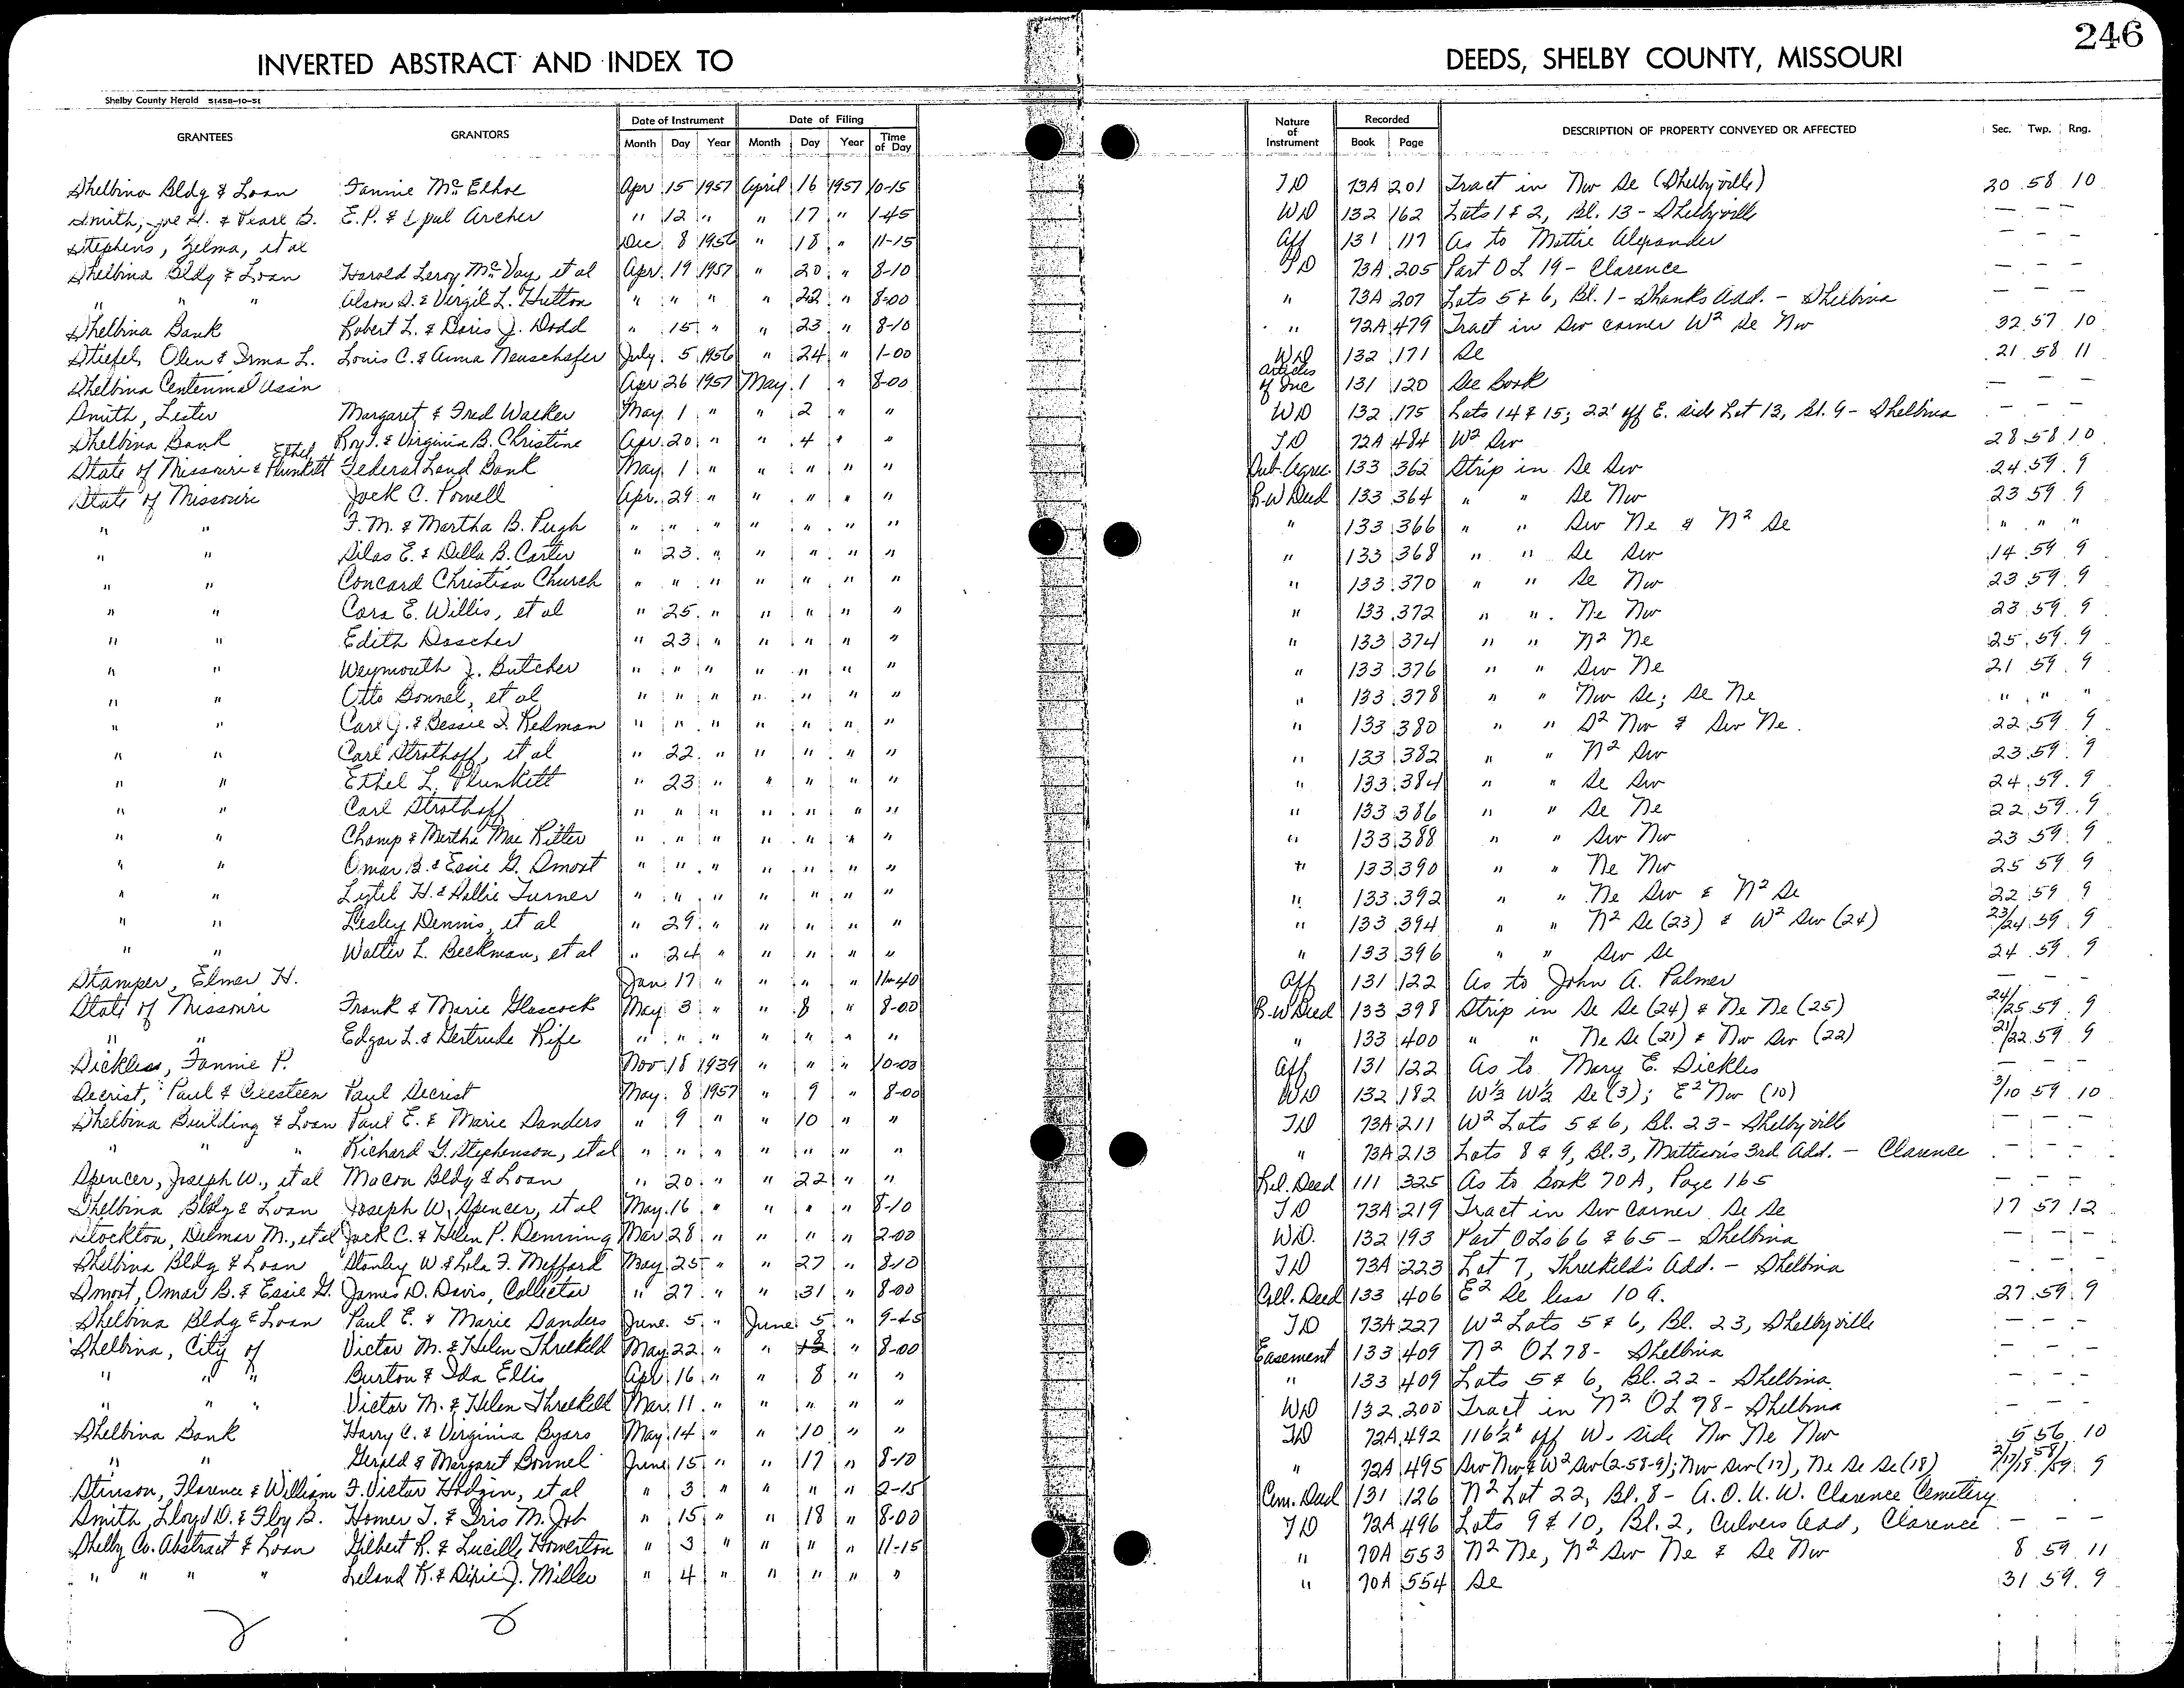 246
INVERTED ABSTRACT AND INDEX TO DEEDS, SHELBY COUNTY, MISSOURI
Shelby County Herald 51458-10-51
GRANTEES GRANTORS Date of Instrument Date of Filing Nature of Instrument Recorded DESCRIPTION OF PROPERTY CONVEYED OR AFFECTED Sec. Twp. Rng.
Month Day Year Month Day Year Time of Day Book Page
Shelbina Bldg & Loan Fannie McElhoe Apr 15 1957 April 16 1957 10-15 TD 73A 201 Tract in Nw Se (Shelbyville) 20 58 10
Smith, Joe S. & Pearl B. E.P. & Opal Archer " 12 " " 17 " 1-45 WD 132 162 Lots 1 & 2, Bl. 13 - Shelbyville — — —
Stephens, Zelma, et al Dec 8 1956 " 18 " 11-15 Aff 131 117 As to Mattie Alexander — — —
Shelbina Bldg & Loan Harold Leroy McVay, et al Apr. 19 1957 " 20 " 8-10 TD 73A 205 Part OL 19 - Clarence — — —
" " " Alson D. & Virgil L. Hutton " " " " 22 " 8-00 " 73A 207 Lots 5 & 6, Bl. 1 - Shanks Add. - Shelbina — — —
Shelbina Bank Robert L. & Doris J. Dodd " 15 " " 23 " 8-10 " 72A 479 Tract in Sw corner W2 Se Nw 32 57 10
Stiefel, Olen & Irma L. Louis C. & Anna Neuschafer July 5 1956 " 24 " 1-00 WD 132 171 Se 21 58 11
Shelbina Centennial Ass'n Apr 26 1957 May 1 " 8-00 Articles of Inc 131 120 See Book — — —
Smith, Lester Margaret & Fred Walker May 1 " " 2 " " WD 132 175 Lots 14 & 15; 22' off E. side Lot 13, Bl. 9 - Shelbina — — —
Shelbina Bank Roy T. & Virginia B. Christine Apr. 20 " " 4 " " TD 72A 484 W2 Sw 28 58 10
State of Missouri & Ethel Plunkett Federal Land Bank May 1 " " " " " Sub. Agree. 133 362 Strip in Se Sw 24 59 9
State of Missouri Jack C. Powell Apr. 29 " " " " " R-W Deed 133 364 " " Se Nw 23 59 9
" " F.M. & Martha B. Pugh " " " " " " " " 133 366 " " Sw Ne & N2 Se " " "
" " Silas E. & Della B. Carter " 23 " " " " " " 133 368 " " Se Sw 14 59 9
" " Concord Christian Church " " " " " " " " 133 370 " " Se Nw 23 59 9
" " Cora E. Willis, et al " 25 " " " " " " 133 372 " " Ne Nw 23 59 9
" " Edith Drescher " 23 " " " " " " 133 374 " " N2 Ne 25 59 9
" " Weymouth J. Butcher " " " " " " " " 133 376 " " Sw Ne 21 59 9
" " Otto Bonnel, et al " " " " " " " " 133 378 " " Nw Se; Se Ne " " "
" " Carl J. & Bessie I. Redman " " " " " " " " 133 380 " " S2 Nw & Sw Ne 22 59 9
" " Carl Strothoff, et al " 22 " " " " " " 133 382 " " N2 Sw 23 59 9
" " Ethel L. Plunkett " 23 " " " " " " 133 384 " " Se Sw 24 59 9
" " Carl Strothoff " " " " " " " " 133 386 " " Se Ne 22 59 9
" " Champ & Martha Mae Ritter " " " " " " " " 133 388 " " Sw Nw 23 59 9
" " Omar B. & Essie G. Smoot " " " " " " " " 133 390 " " Ne Nw 25 59 9
" " Lytel H. & Hallie Turner " " " " " " " " 133 392 " " Ne Sw & N2 Se 22 59 9
" " Lesley Dennis, et al " 29 " " " " " " 133 394 " " N2 Se (23) & W2 Sw (24) 23/24 59 9
" " Walter L. Beckman, et al " 24 " " " " " " 133 396 " " Sw Se 24 59 9
Stamper, Elmer H. Jan 17 " " " " 11-40 Aff 131 122 As to John A. Palmer — — —
State of Missouri Frank & Marie Glascock May 3 " " 8 " 8-00 R-W Deed 133 398 Strip in Se Se (24) & Ne Ne (25) 24/25 59 9
" " Edgar L. & Gertrude Rife " " " " " " " " 133 400 " " Ne Se (21) & Nw Sw (22) 21/22 59 9
Sickles, Fannie P. Nov 18 1939 " " " 10-00 Aff 131 122 As to Mary E. Sickles — — —
Secrist, Paul & Celesteen Paul Secrist May 8 1957 " 9 " 8-00 WD 132 182 W⅓ W½ Se (3); E2 Nw (10) 3/10 59 10
Shelbina Building & Loan Paul E. & Marie Sanders " 9 " " 10 " " TD 73A 211 W2 Lots 5 & 6, Bl. 23 - Shelbyville — — —
" " " Richard G. Stephenson, et al " " " " " " " " 73A 213 Lots 8 & 9, Bl. 3, Mattison's 3rd Add. - Clarence — — —
Spencer, Joseph W., et al Macon Bldg & Loan " 20 " " 22 " " Rel. Deed 111 325 As to Book 70A, Page 165 — — —
Shelbina Bldg & Loan Joseph W. Spencer, et al May 16 " " " " 8-10 TD 73A 219 Tract in Sw Corner Se Se 17 57 12
Stockton, Delmar M., et al Jack C. & Helen P. Denning Mar 28 " " " " 2-00 WD. 132 193 Part OLs 66 & 65 - Shelbina — — —
Shelbina Bldg & Loan Stanley W. & Lola F. Mefford May 25 " " 27 " 8-10 TD 73A 223 Lot 7, Threlkeld's Add. - Shelbina — — —
Smoot, Omar B. & Essie G. James D. Davis, Collector " 27 " " 31 " 8-00 Coll. Deed 133 406 E2 Se less 10 A. 27 59 9
Shelbina Bldg & Loan Paul E. & Marie Sanders June 5 " June 5 " 9-45 TD 73A 227 W2 Lots 5 & 6, Bl. 23, Shelbyville — — —
Shelbina, City of Victor M. & Helen Threlkeld May 22 " " 8 " 8-00 Easement 133 409 N2 OL 78 - Shelbina — — —
" " " Burton & Ida Ellis Apr 16 " " 8 " " " 133 409 Lots 5 & 6, Bl. 22 - Shelbina — — —
" " " Victor M. & Helen Threlkeld Mar. 11 " " " " " WD 132 200 Tract in N2 OL 78 - Shelbina — — —
Shelbina Bank Harry C. & Virginia Byars May 14 " " 10 " " TD 72A 492 116½' off W. side Nw Ne Nw 5 56 10
" " Gerald & Margaret Bonnel June 15 " " 17 " 8-10 " 72A 495 Sw Nw & W2 Sw (2-58-9); Nw Sw (17), Ne Se Se (18) 2/17/18 58/59 9
Stinson, Florence & William F. Victor Hodgin, et al " 3 " " " " 2-15 Cem. Deed 131 126 N2 Lot 22, Bl. 8 - A.O.U.W. Clarence Cemetery
Smith, Lloyd D. & Floy B. Homer T. & Iris M. Job " 15 " " 18 " 8-00 TD 72A 496 Lots 9 & 10, Bl. 2, Culvers Add, Clarence — — —
Shelby Co. Abstract & Loan Gilbert R. & Lucille Howerton " 3 " " " " 11-15 " 70A 553 N2 Ne, N2 Sw Ne & Se Nw 8 59 11
" " " " Leland K. & Dixie J. Miller " 4 " " " " " " 70A 554 Se 31 59 9